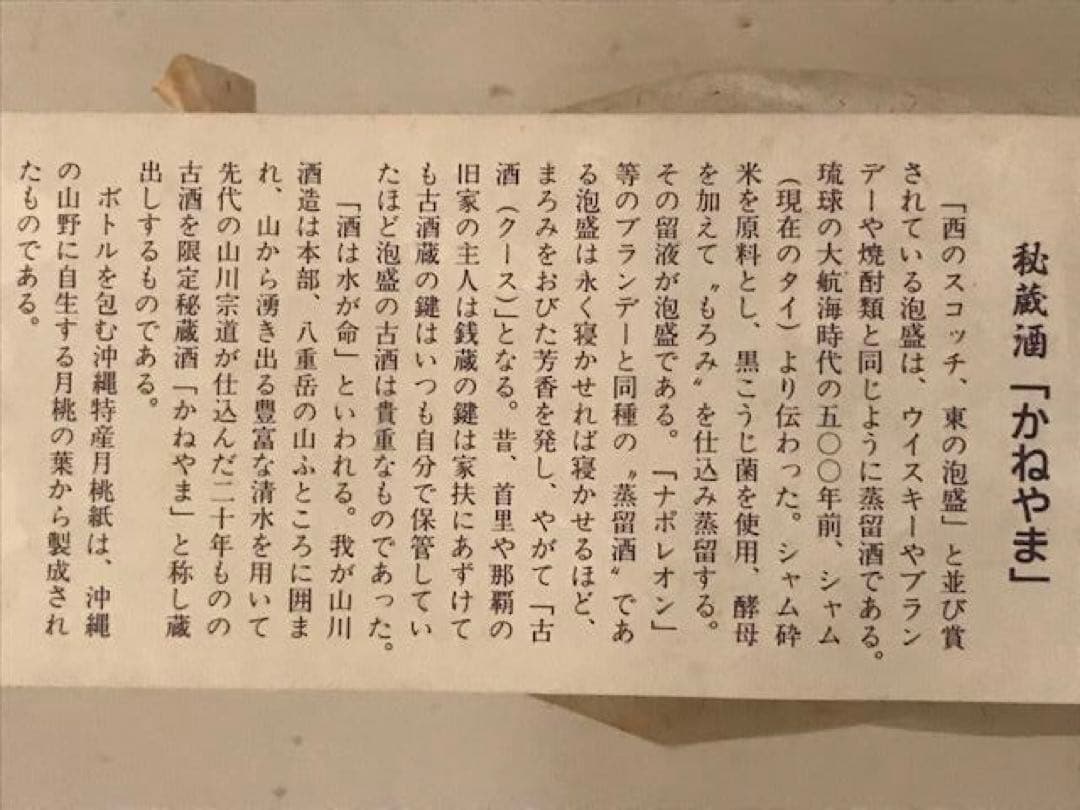 秘蔵酒「かねやま」
「西のスコッチ、東の泡盛」と並び賞
されている泡盛は、ウイスキーやブラン
デーや焼酎類と同じように蒸留酒である。
琉球の大航海時代の五〇〇年前、シャム
（現在のタイ）より伝わった。シャム砕
米を原料とし、黒こうじ菌を使用、酵母
を加えて〝もろみ〟を仕込み蒸留する。
その留液が泡盛である。「ナポレオン」
等のブランデーと同種の〝蒸留酒〟であ
る泡盛は永く寝かせれば寝かせるほど、
まろみをおびた芳香を発し、やがて「古
酒（クース）」となる。昔、首里や那覇の
旧家の主人は銭蔵の鍵は家扶にあずけて
も古酒蔵の鍵はいつも自分で保管してい
たほど泡盛の古酒は貴重なものであった。
「酒は水が命」といわれる。我が山川
酒造は本部、八重岳の山ふところに囲ま
れ、山から湧き出る豊富な清水を用いて
先代の山川宗道が仕込んだ二十年ものの
古酒を限定秘蔵酒「かねやま」と称し蔵
出しするものである。
ボトルを包む沖縄特産月桃紙は、沖縄
の山野に自生する月桃の葉から製成され
たものである。